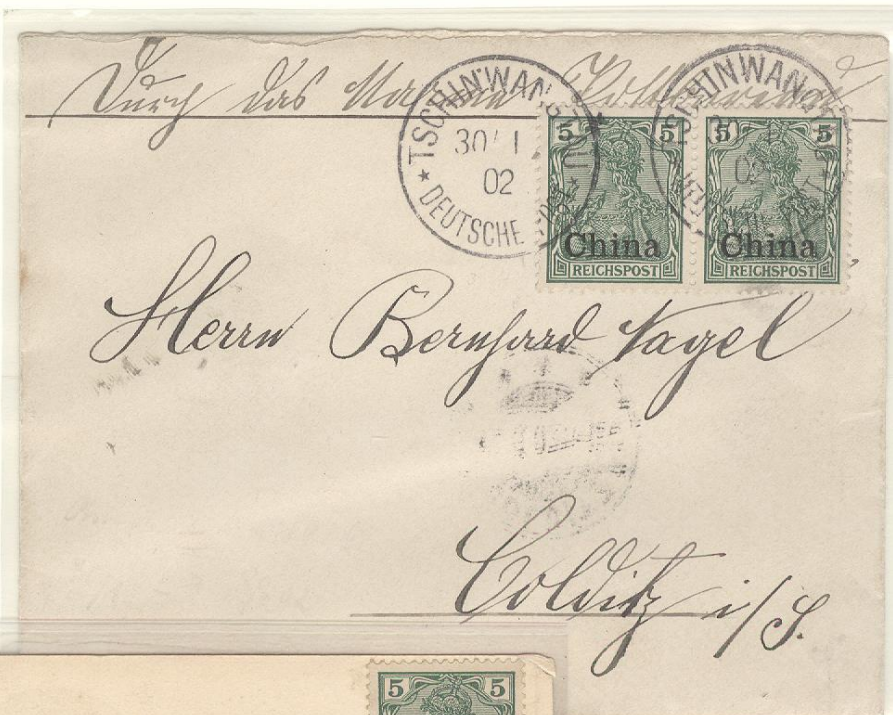 Durch das Marine Postbureau
TSCHINWANGTAU
30/1
02
* DEUTSCHE POST *
TSCHINWANGTAU
5 5
5 5
China
China
REICHSPOST
REICHSPOST
Herrn Bernhard Nagel
Colditz i/S.
5 5